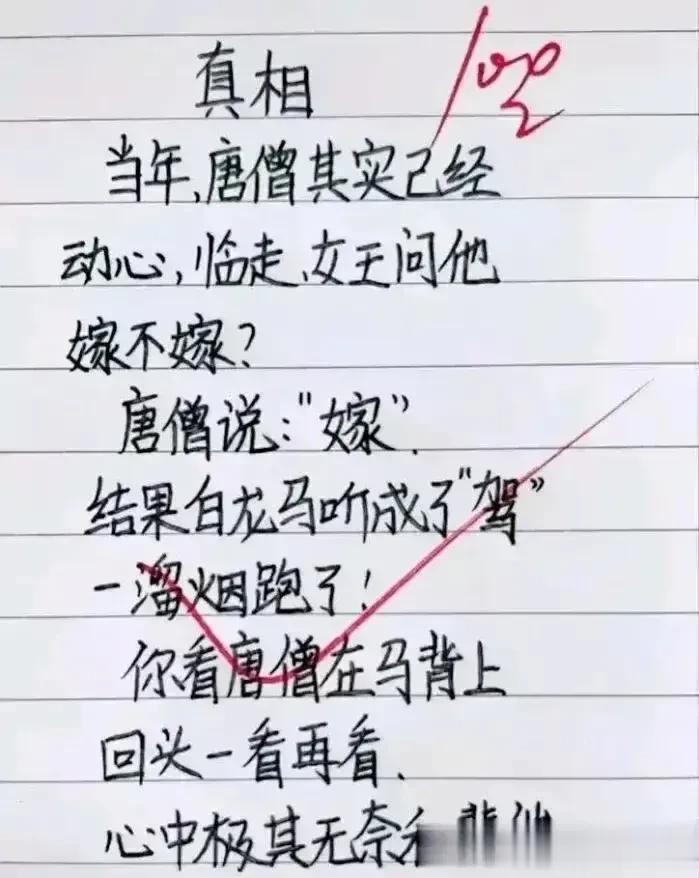 真相
100
当年,唐僧其实己经
动心,临走,女王问他
嫁不嫁?
唐僧说:"嫁".
结果白龙马听成了"驾"
一溜烟跑了!
你看唐僧在马背上
回头一看再看.
心中极其无奈